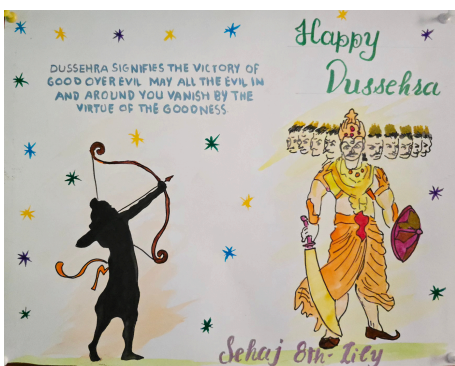 Happy
Dussehra
DUSSEHRA SIGNIFIES THE VICTORY OF
GOOD OVER EVIL MAY ALL THE EVIL IN
AND AROUND YOU VANISH BY THE
VIRTUE OF THE GOODNESS
Sehaj 8th-Lily